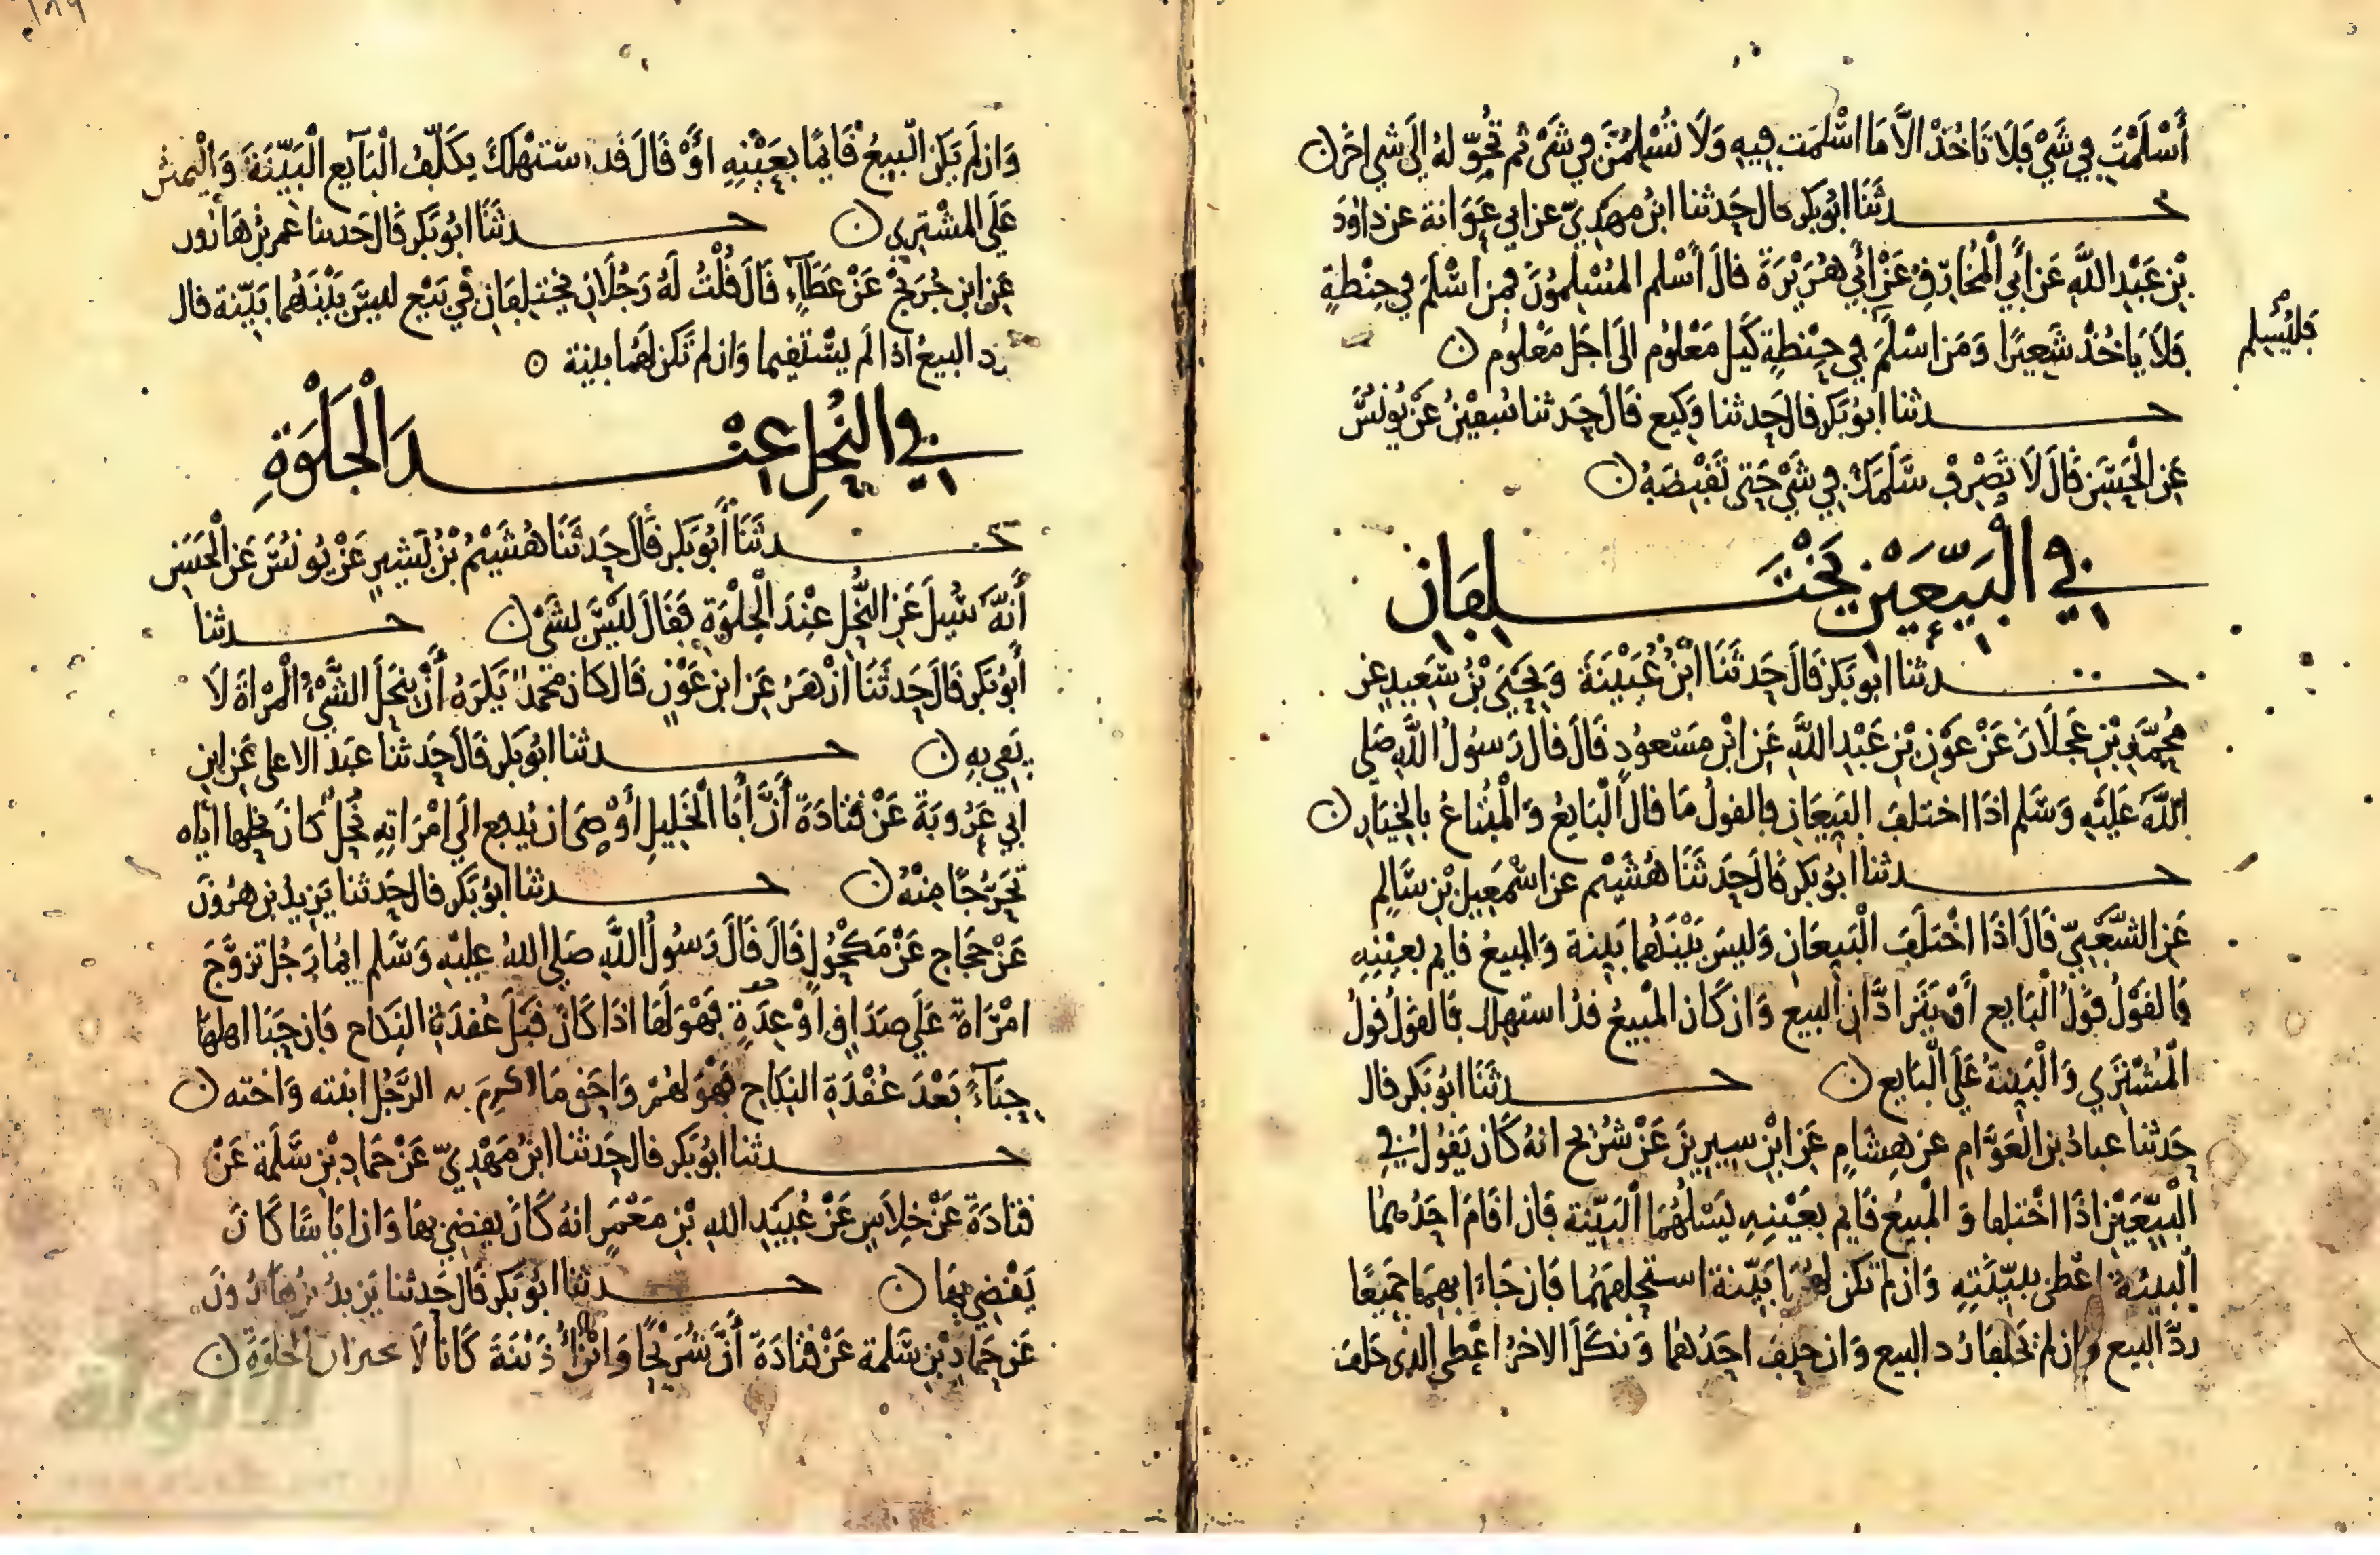 أَسْلَمْتَ في شَيْ فَلَا تَاخُذْ الاَّ مَا اسْلمَت فِيهِ وَلَا تُسْلِمَنَّ في شَيْ ثم تُحَوِّله إلَى شي اخَر ن
حدثَنَا ابُو بَكر قال حَدثنا ابنُ مهْدِيّ عن ابي عَوَانة عن داوُدَ
بْنِ عَبْدِ اللَّهِ عَن أَبي الْمُخَارِقِ عَنْ أَبي هُرَيْرَةَ قالَ أَسْلم المُسْلمُونَ فمن اسْلَمَ في حِنْطةٍ
فَلَا يَاخُذْ شَعِيرًا وَمَن اسْلَمَ في حِنْطةٍ كَيل مَعْلُوم الَى اجَل مَعْلُوم ن
فليُسلم
حدثنا ابُو بَكر قالَ حَدثنا وَكِيع قَالَ حَدثنا سُفيْنُ عَنْ يُونسَ
عَن الْحَسَن قَالَ لَا تَصْرِفْ سَلَمَكَ في شَيْ حَتى تَقْبِضَهُ ن
في الْبَيِّعَيْنِ يَخْتَلِفَانِ
حدثنا ابُو بَكر قَالَ حَدثَنَا ابْنُ عُيَيْنَةَ وَيَحْيَى بْنُ سَعِيدٍ عن
مُحَمَّدِ بْنِ عَجْلَانَ عَنْ عَوْنِ بْنِ عَبْدِ اللَّهِ عَن ابْنِ مَسْعودٍ قَالَ قالَ رَسُولُ اللَّهِ صَلى
اللَّهُ عَلَيْهِ وَسَلم اذَا اختلفَ البَيعَانِ فالقولُ مَا قالَ الْبَايعُ وَالْمُبْتاعُ بالخِيَارِ ن
حدثنا ابُو بَكر قَالَ حَدثَنَا هُشَيْم عن اسْمعِيلَ بْنِ سَالِم
عَن الشَّعْبيّ قَالَ اذَا اخْتلَفَ الْبَيعَانِ وَليسَ بَيْنَهُما بَينة وَالمبيعُ قايم بعيْنِهِ
فَالقَوْلُ قَوْلُ الْبَايع أوْ يَتَرادَّانِ البيع وَان كَان المْبيعُ قدُ استهلك فَالقوْلُ قَولُ
الْمُشْتَرِي وَالْبَينةُ عَلَى الْبَايع ن حدثنَا ابُو بَكر قال
حَدثنا عبادُ بن الْعَوَّامِ عن هِشَامٍ عَن ابْنِ سِيرِينَ عَنْ شُرَيْح انهُ كَان يَقُولُ في
الْبَيِّعَيْنِ اذَا اخْتلِفا وَ الْمبيعُ قَايم بعَيْنِهِ يَسْلُهُمَا الْبَيّنة فَان اقَامَ احَدُهما
الْبينةَ اعْطي ببَيّنَتِهِ وَان لم تكن لهُمَا بَيّنة استحلفهُمَا فَان جَاءَا بهمَا جَميعًا
ردَّ البيع وان لم يَحْلِفا رُد البيع وَان حَلِفَ احَدُهُما وَ نكَلَ الاخرُ اعْطي الذي حَلف
وَان لم يَكن الْبيعُ قَايمًا بعَيْنِهِ اوْ قَالَ قد استهْلكَ يكَلّفُ الْبَايع الْبَيّنَةَ وَالْيمينُ
عَلَى المشْتَري ن حدثنَا ابُو بَكر قَالَ حَدثنا عمر بنُ هَارُون
عَن ابن جُرَيْج عَنْ عَطَآءٍ قَالَ قُلْتُ لَهُ رَجُلَان يختلِفَان في بَيْع ليسَ بَيْنَهُما بَيّنة قال
يرد البيعُ اذا لَم يسْتَقيما وَان لم تَكن لهُما بينة ه
في النُحْلِ عِنْدَ الْجلْوَةِ
حدثَنَا أَبُو بَكر قَالَ حَدثَنَا هُشَيْمُ بْنُ بَشِيرٍ عَنْ يُونسَ عَن الْحَسَن
أَنَّهُ سُيلَ عَن النُّحْلِ عِنْدَ الْجلْوَةِ فَقَالَ لَيْسَ بشَيْ ن حدثنا
أَبُو بَكر قَالَ حَدثَنَا ازْهَرُ عَن ابن عَوْنٍ قَالَ كان محمد يَكرَهُ أَنْ ينْحَلَ الشَّيْءُ الْمرْاةَ لَا
يَفي بهِ ن حدثنا ابُو بَكر قَالَ حَدثنا عبد الاعلى عَن ابنِ
ابي عَرُوبَةَ عَنْ قَتَادَةَ أَنَّ أَبَا الْخَلِيلِ أوْصَى ان يُدفع الَى امْرَاتِهِ نُحْلُ كَانَ نحلها اياه
تحَرُّجًا مِنْهُ ن حدثنا ابُو بَكر قالَ حَدثنا يَزِيدُ بن هرُونَ
عَنْ حَجَاج عَنْ مَكْحُولٍ قَالَ قَالَ رَسُولُ اللَّهِ صَلى اللهُ عليْهِ وَسَلم ايمَا رَجُل تزوَّجَ
امْرَاةً عَلَى صدَاقٍ أوْ عِدَةٍ فَهْوَ لَهَا اذَا كَانَ قَبْلَ عُقدَةِ النِكَاح فَان حَبَا اهلها
حِبَآءً بَعْدَ عُقْدَةِ النِكَاح فَهْوَ لهُمْ وَاحَق مَا اكرِمَ به الرَّجُل ابنته وَاخته ن
حدثنا ابُو بَكر قال حَدثنا ابنُ مَهْدِيّ عَنْ حَمادِ بْنِ سَلَمة عَنْ
قتادَةَ عَنْ خِلَاسٍ عَنْ عُبَيْدِ اللهِ بْنِ مَعْمَرٍ انهُ كَانَ يقضِي بهَا وَان ايَاسًا كَانَ
يَقْضي بهَا ن حدثنا ابُو بَكر قَالَ حَدثنا يَزيدُ بنُ هَارُونَ
عَن حَمادِ بْنِ سَلمة عَنْ قتادَةَ أَنَّ شُرَيْحًا وَابْنَ أُذَيْنَة كَانَا لَا يجيزان الجلوَة ن